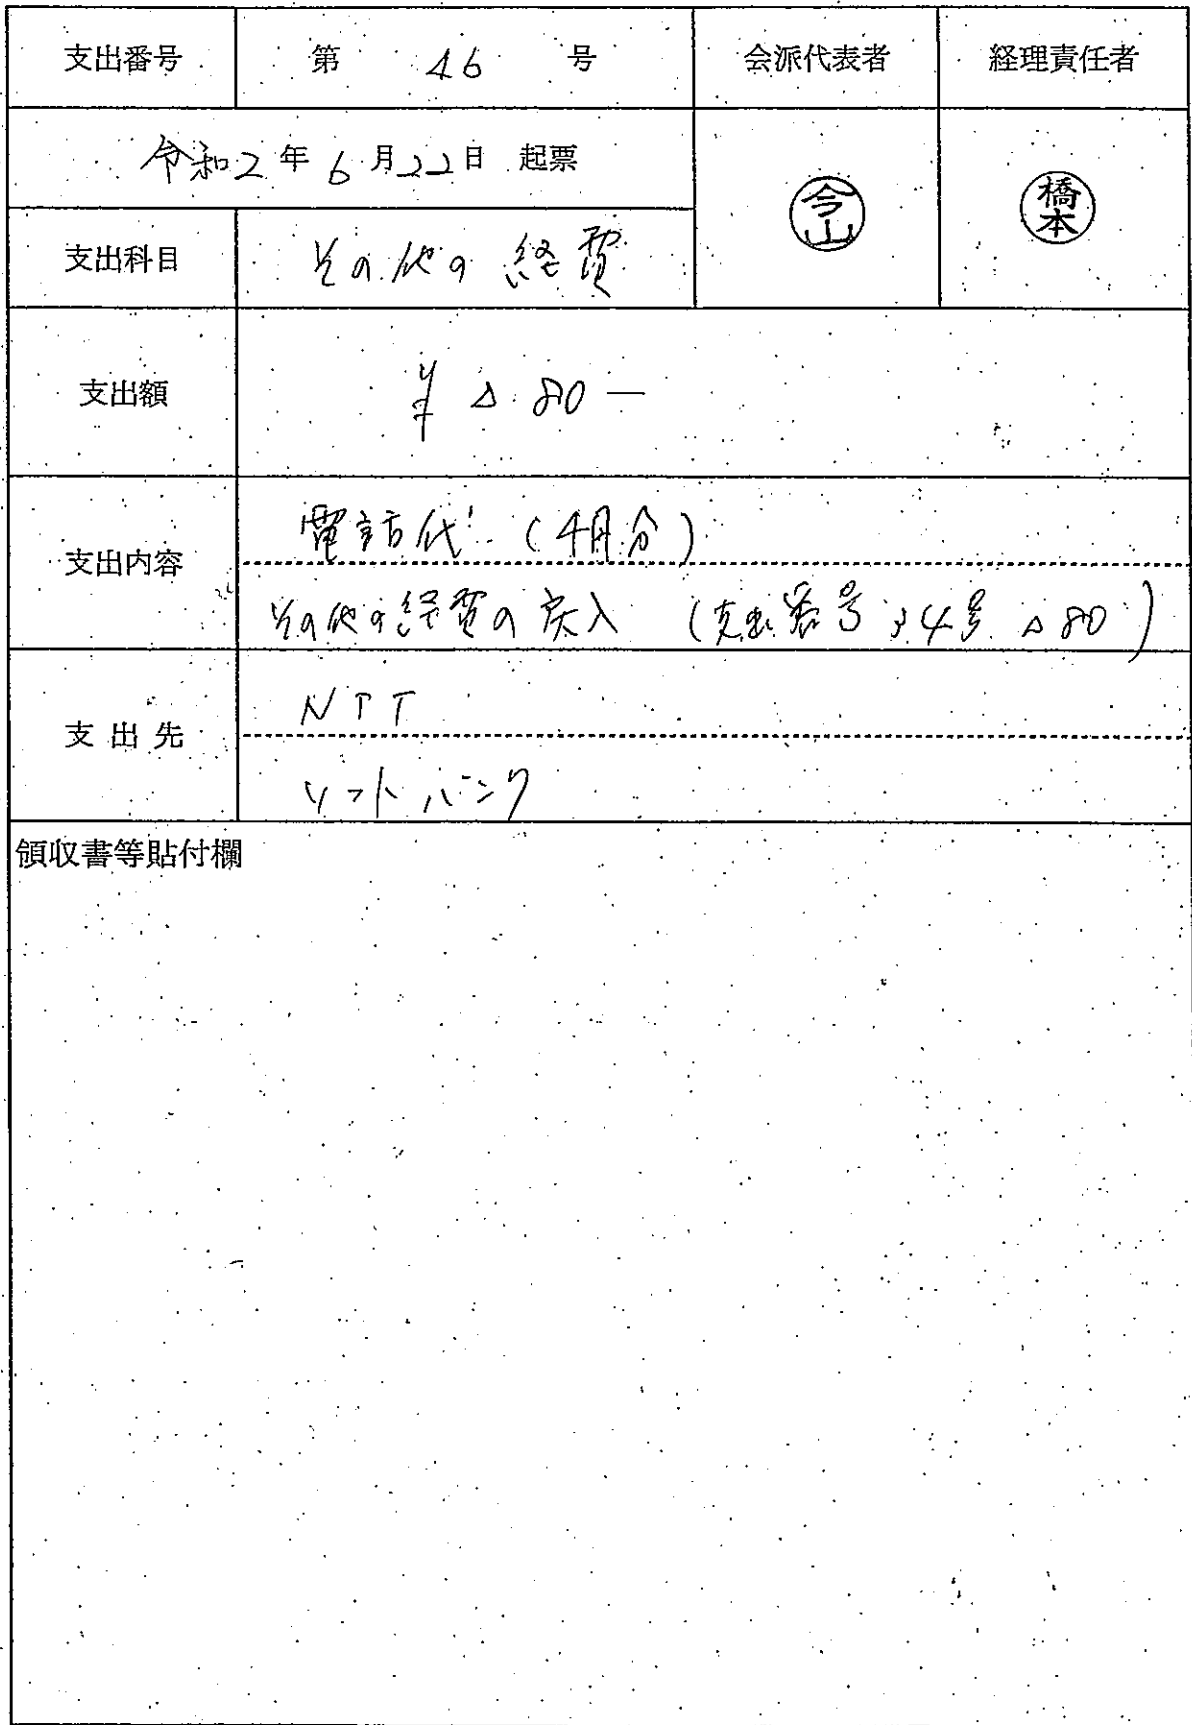 支出番号 第 46 号 会派代表者 経理責任者
令和2年6月22日 起票
今山
橋本
支出科目 その他の経費
支出額 ¥ △ 80 —
支出内容 電話代 (4月分)
その他の経費の戻入 (支出番号 34号 △80)
支出先 NTT
ソフトバンク
領収書等貼付欄